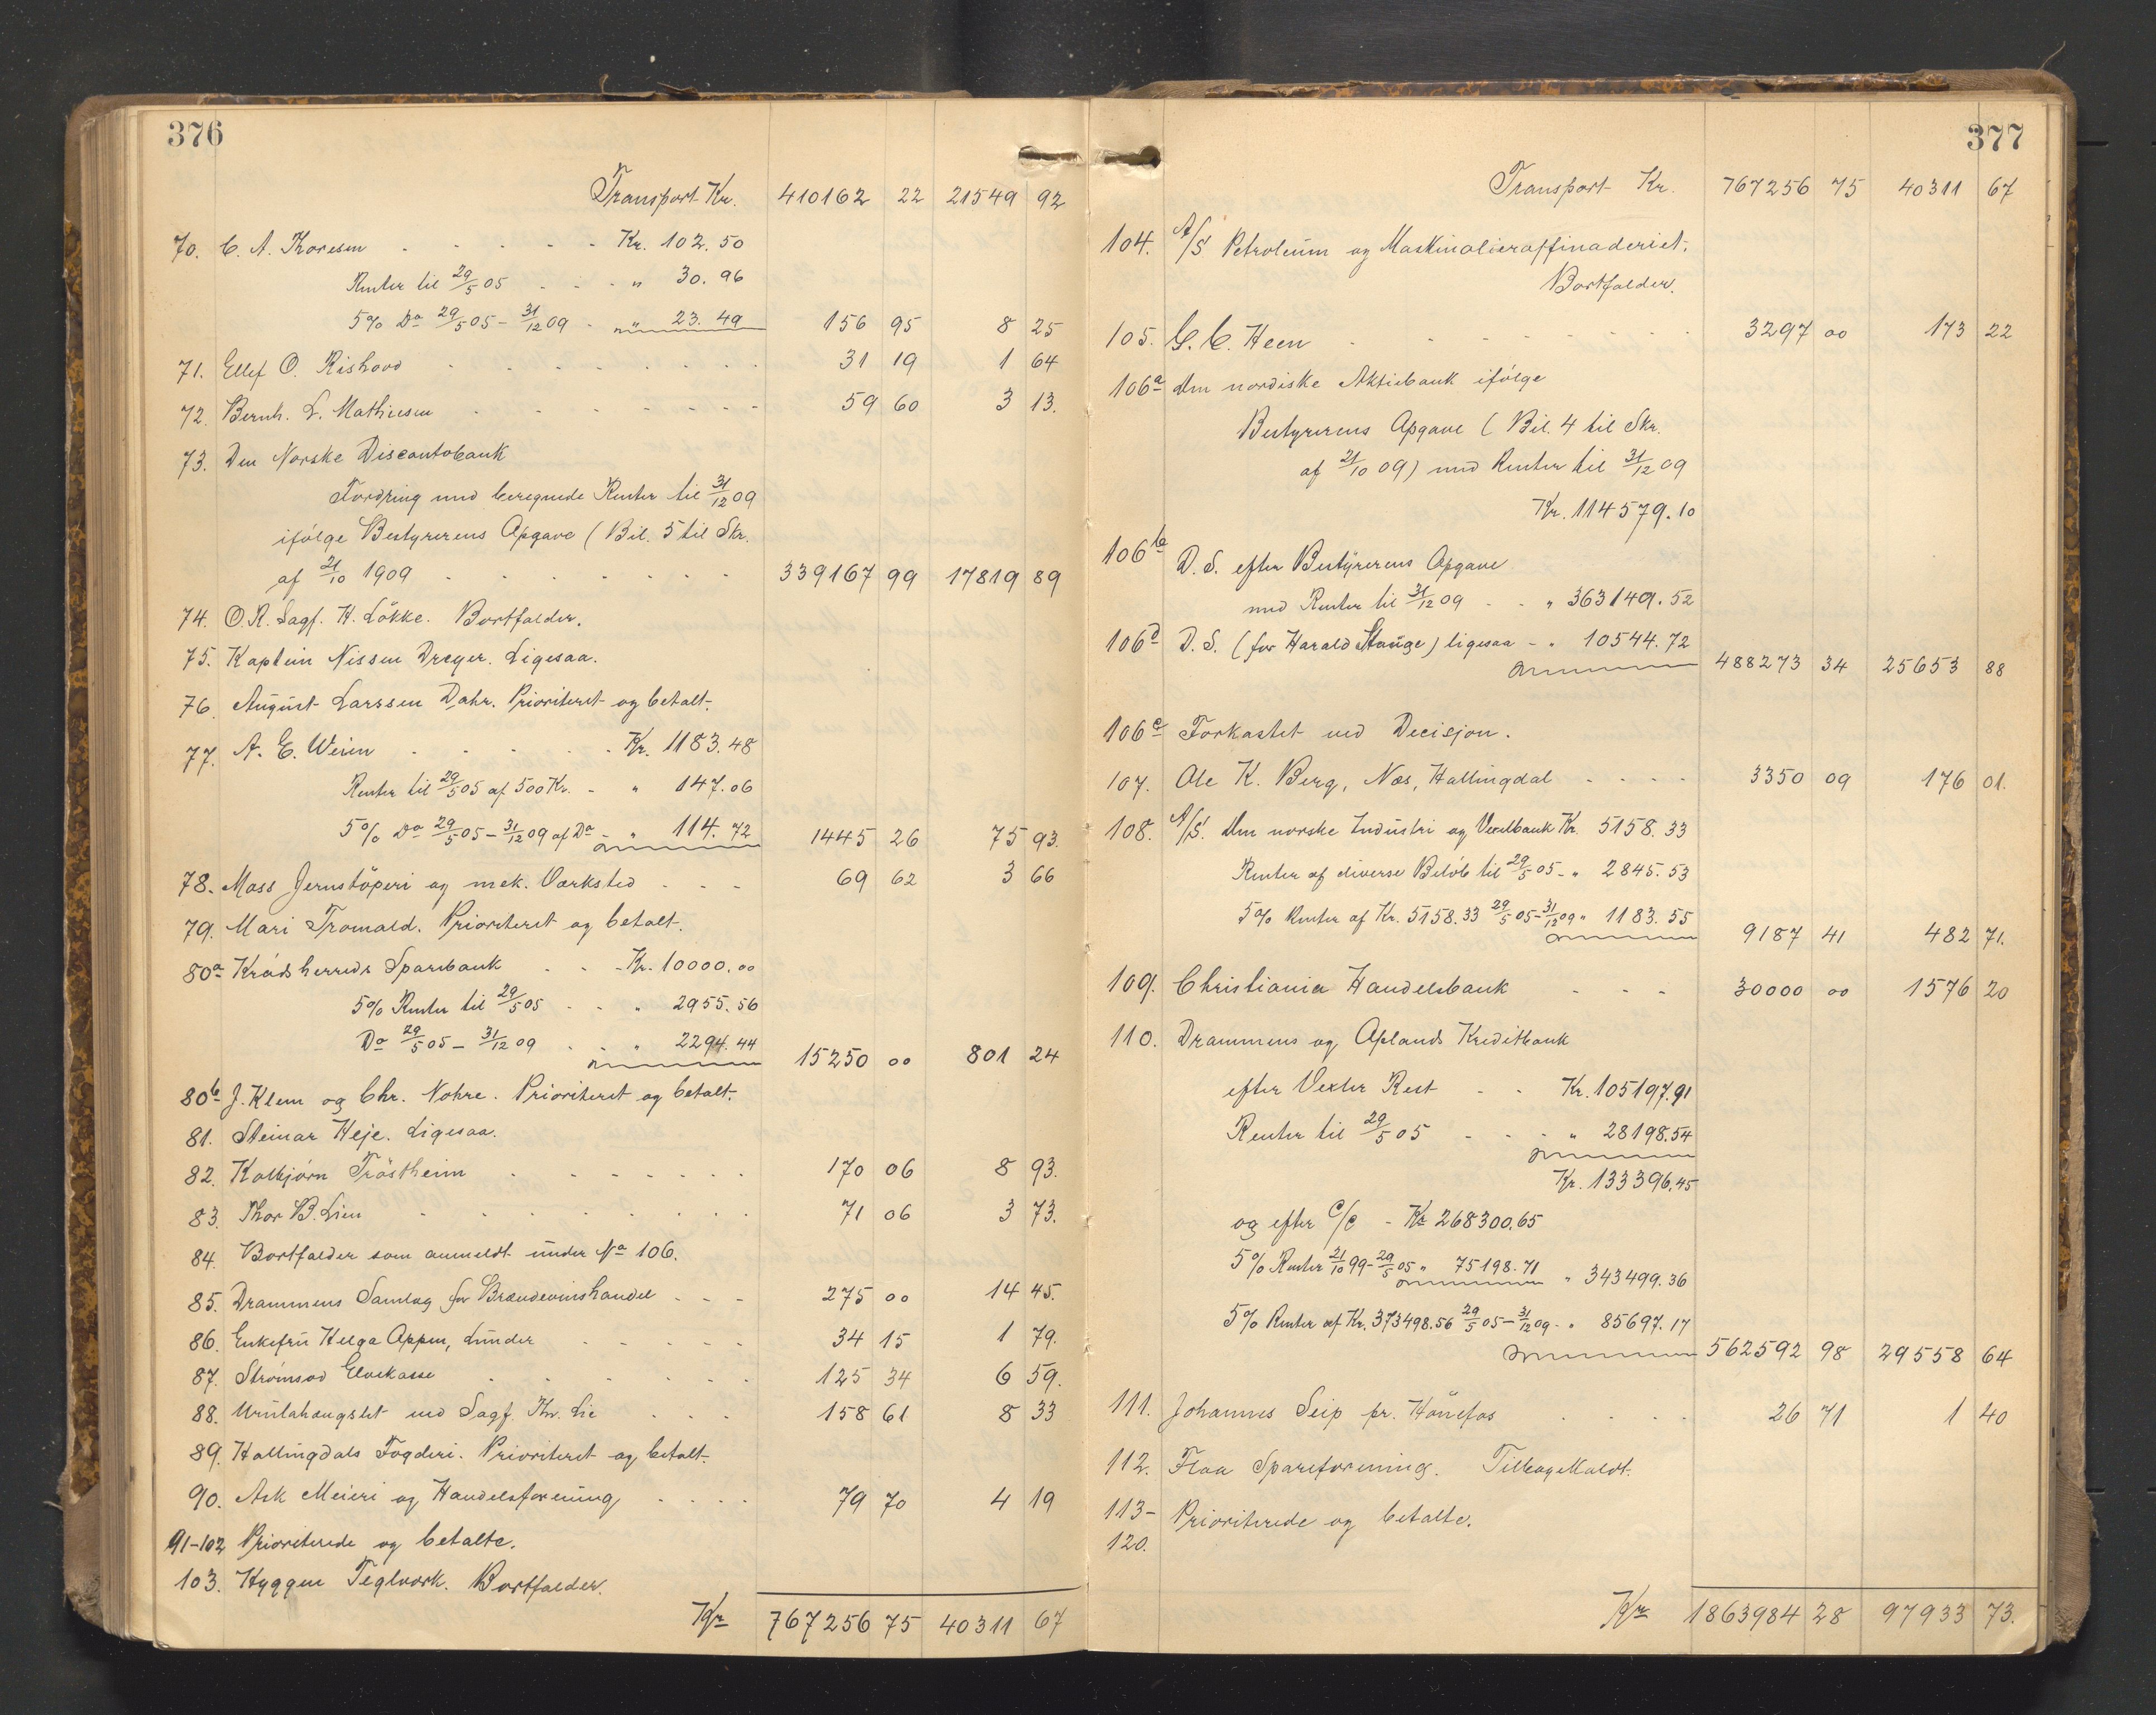 376
Transport Kr. 410162 22 21549 92
70. C. A. Thoresen - - - - - Kr. 102.50
Renter til 29/5 05 - - - " 30.96
5% Do 29/5 05 - 31/12 09 - " 23.49 156 95 8 25
71. Ellef O. Rishovd - - - - - - 31 19 1 64
72. Bernh. L. Mathiesen - - - - - - 59 60 3 13.
73. Den Norske Discontobank
Fordring med beregnede Renter til 31/12 09
ifølge Bestyrerens Opgave (Bil. 5 til Skr.
af 21/10 1909 - - - - - - 339167 99 17819 89
74. O.R. Sagf. H. Løkke. Bortfalder.
75. Kaptein Nissen Dreyer. Ligesaa.
76. August Larssen Dahr. Prioriteret og betalt.
77. A. E. Weien - - - - - Kr. 1183.48
Renter til 29/5 05 af 500 Kr. - " 147.06
5% Do 29/5 05 - 31/12 09 af Do - " 114.72 1445 26 75 93.
78. Moss Jernstøperi og mek. Værksted - - - 69 62 3 66
79. Mari Tromald. Prioriteret og betalt.
80a Krødsherreds Sparebank - - - Kr. 10000.00
5% Renter til 29/5 05 - - " 2955.56
Do 29/5 05 - 31/12 09 - - " 2294.44 15250 00 801 24
80b J. Klem og Chr. Nohre. Prioriteret og betalt.
81. Steinar Heje. Ligesaa.
82. Kolbjørn Trøstheim - - - - - - 170 06 8 93.
83. Thor B. Lien - - - - - - - 71 06 3 73.
84. Bortfalder som anmeldt under No 106.
85. Drammens Samlag for Brændevinshandel - - - 275 00 14 45.
86. Enkefru Helga Oppen, Lunder - - - - - 34 15 1 79.
87. Strømsod Elvekasse - - - - - - 125 34 6 59.
88. ved Sagf. Thv. Lie - - - 158 61 8 33
89. Hallingdals Fogderi. Prioriteret og betalt.
90. Ask Meieri og Handelsforening - - - - 79 70 4 19
91-102 Prioriterede og betalte.
103. Hyggen Teglværk. Bortfalder.
Kr 767256 75 40311 67
377
Transport Kr. 767256 75 40311 67
104. A/S Petroleum og Maskinolieraffinaderiet.
Bortfalder.
105. G. C. Heen - - - - - - 3297 00 173 22
106a Den nordiske Aktiebank ifølge
Bestyrerens Opgave (Bil. 4 til Skr.
af 21/10 09) med Renter til 31/12 09
Kr. 114579.10
106b D. S. efter Bestyrerens Opgave
med Renter til 31/12 09 - - " 363149.52
106d D. S. (for Harald Stange) ligesaa - " 10544.72 488273 34 25653 88
106c Forkastet ved Decisjon.
107. Ole K. Berg, Næs, Hallingdal - - - - 3350 09 176 01.
108. A/S. Den norske Industri og Vexelbank Kr. 5158.33
Renter af diverse Beløb til 29/5 05 - " 2845.53
5% Renter af Kr. 5158.33 29/5 05 - 31/12 09 " 1183.55 9187 41 482 71.
109. Christiania Handelsbank - - - 30000 00 1576 20
110. Drammens og Oplands Kreditbank
efter Vexler Rest - - Kr. 105197.91
Renter til 29/5 05 - - - " 28198.54
Kr. 133396.45
og efter C/C - Kr 268300.65
5% Renter 21/10 99 - 29/5 05 " 75198.71 " 343499.36
5% Renter af Kr. 373498.56 29/5 05 - 31/12 09 - " 85697.17 562592 98 29558 64
111. Johannes Seip pr. Hønefos - - - - 26 71 1 40
112. Flaa Spareforening. Tilbagekaldt.
113- Prioriterede og betalte.
120.
Kr 1863984 28 97933 73.